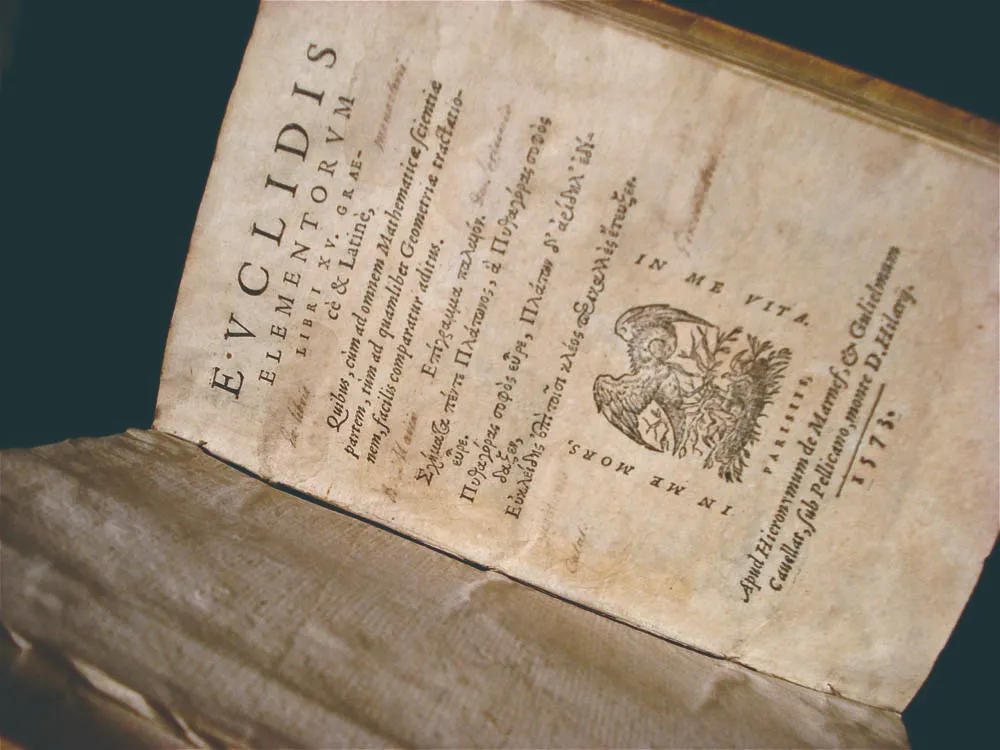 EVCLIDIS
ELEMENTORVM
LIBRI XV. GRAE-
cè & Latinè,
Quibus, cùm ad omnem Mathematicæ scientiæ
partem, tùm ad quamlibet Geometriæ tractatio-
nem, facilis comparatur aditus.
Επίγραμμα παλαιόν.
Σχήματα πέντε Πλάτωνος, ἃ Πυθαγόρας σοφὸς
εὗρε.
Πυθαγόρας σοφὸς εὗρε, Πλάτων δ' ἀρίδηλ' ἐδί-
δαξεν,
Εὐκλείδης ἐπὶ τοῖσι κλέος περικαλλὲς ἔτευξεν.
IN ME VITA.
IN ME MORS,
PARISIIS,
Apud Hieronymum de Marnef, & Gulielmum
Cauellat, sub Pelicano, monte D. Hilarij.
1573.